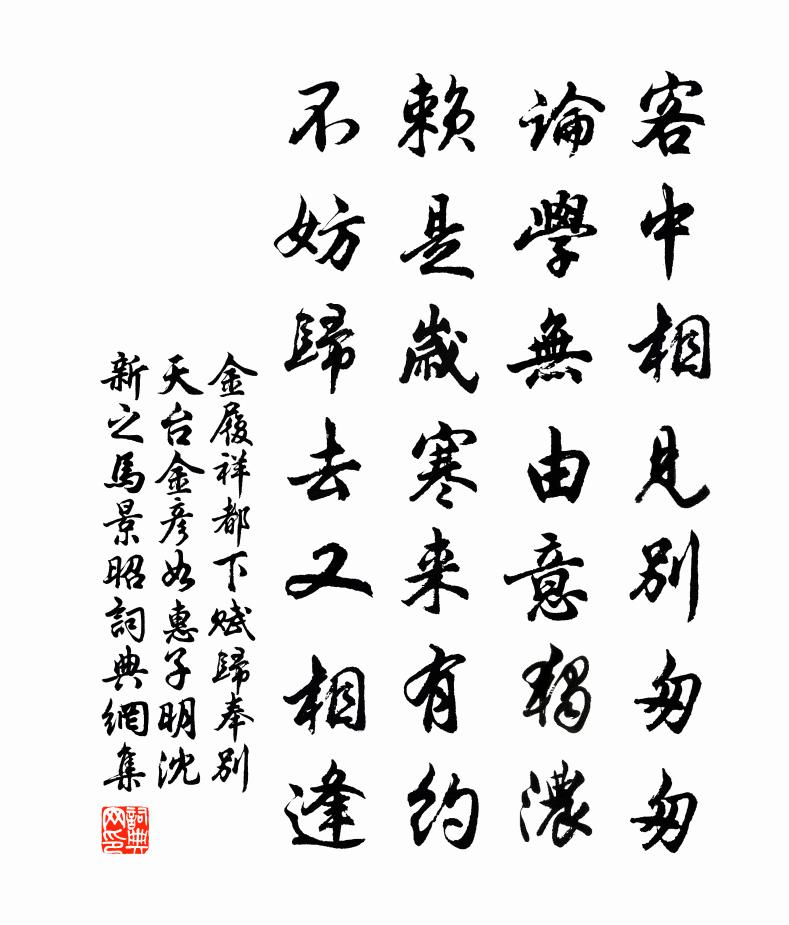 客中相見別匆匆
論學無由意獨濃
賴是歲寒来有約
不妨歸去又相逢
金履祥都下賦歸奉別
天台金彦如惠子明沈
新之馬景昭詞典網集
詞典网印